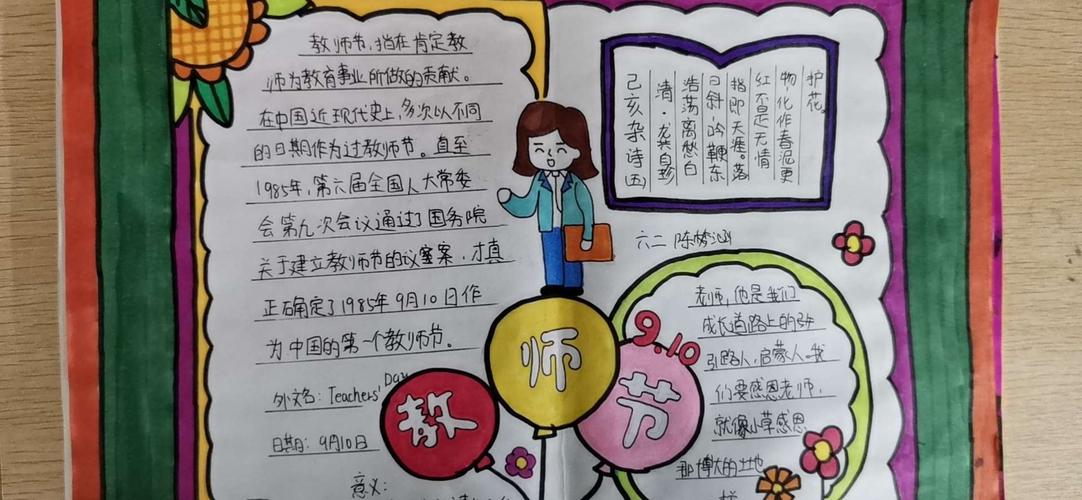 教师节,指在肯定教
师为教育事业所做的贡献。
在中国近现代史上,多次以不同
的日期作为过教师节。直至
1985年,第六届全国人大常委
会第九次会议通过了国务院
关于建立教师节的议案,才真
正确定了1985年9月10日作
为中国的第一个教师节。
外文名: Teachers' Day
日期: 9月10日
意义:
教师节
9.10
己亥杂诗 五
清·龚自珍
浩荡离愁白
日斜,吟鞭东
指即天涯。落
红不是无情
物,化作春泥更
护花。
六二 陈梦涵
老师,他是我们
成长道路上的
引路人,启蒙人。我
们要感恩老师,
就像小草感恩
那博大的土地
样